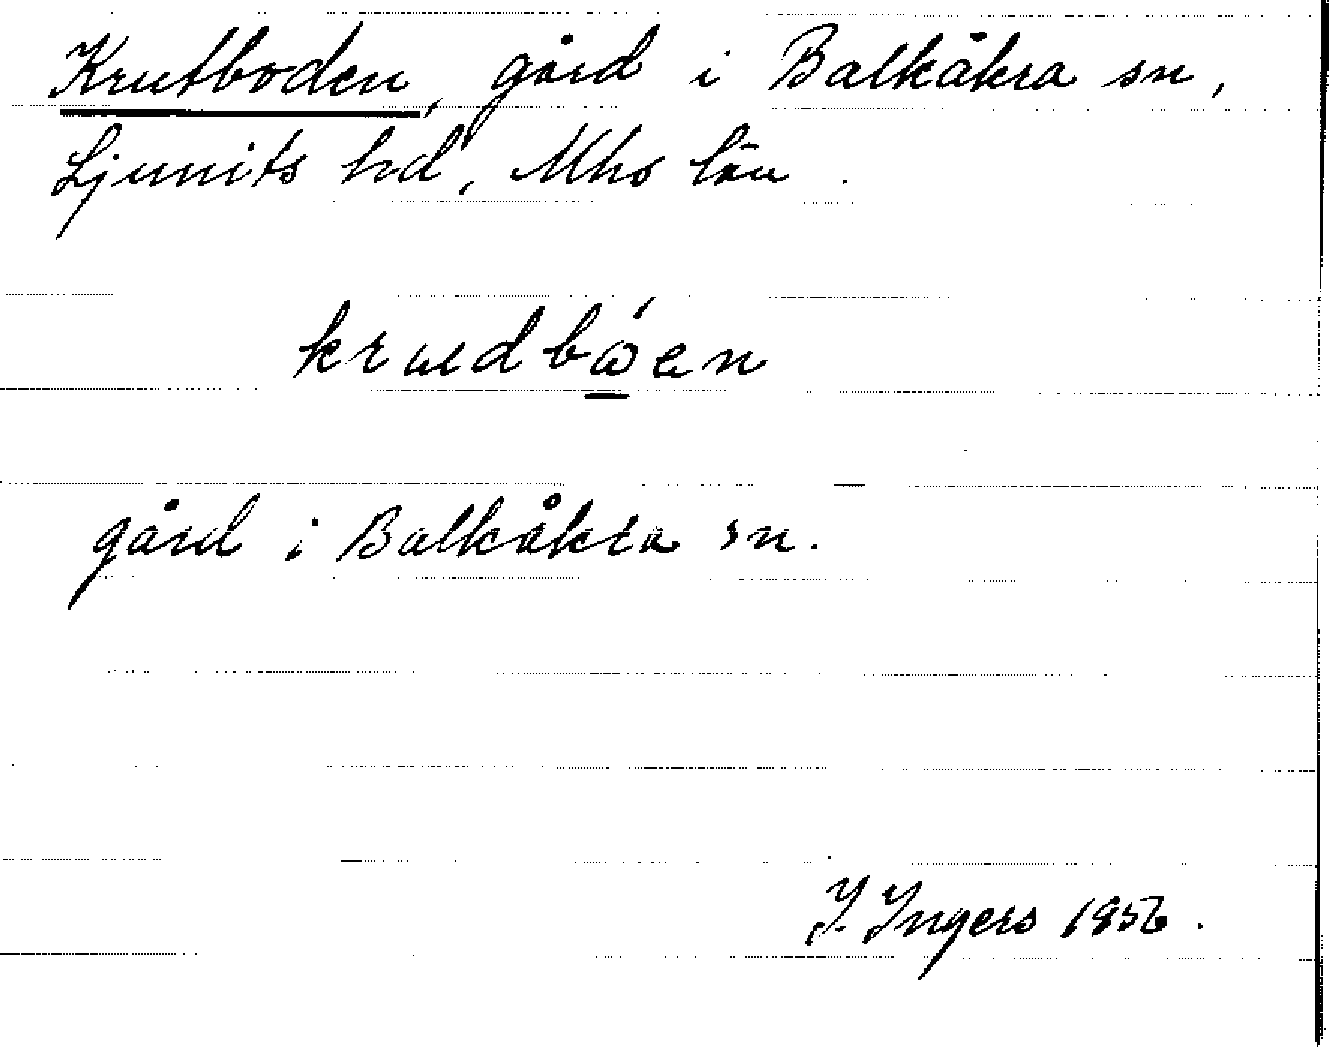 Krutboden, gård i Balkåkra sn,
Ljunits hd, Mhs län.
krudbóen
gård i Balkåkra sn.
I. Ingers 1956.